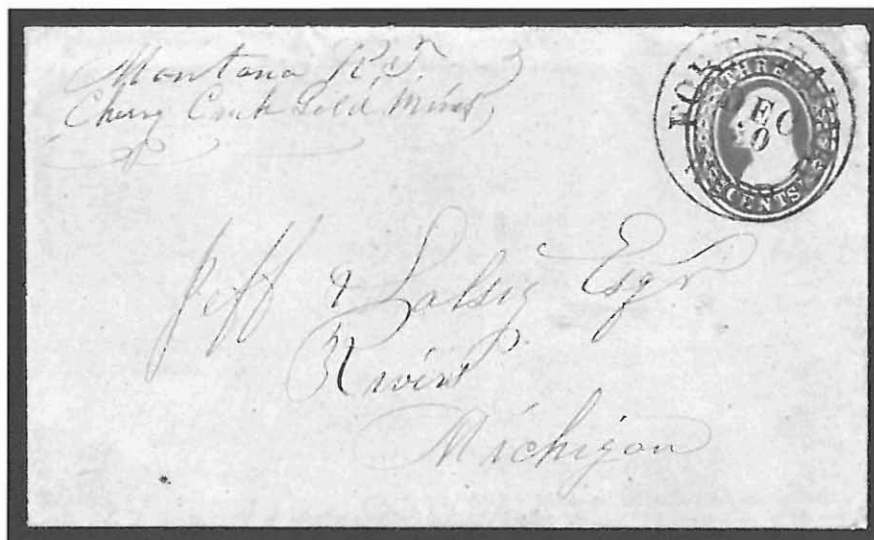 Montana K.T.
Cherry Creek Gold Mines
THREE
DEC
CENTS
Jeff Salsig Esqr
3 Rivers
Michigan